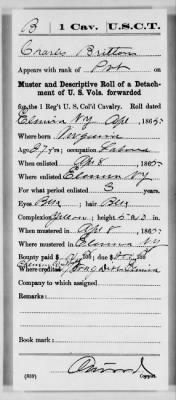 B | 1 Cav. | U.S.C.T.
Charles Britton
Appears with rank of Pvt on
Muster and Descriptive Roll of a Detach-
ment of U. S. Vols. forwarded
for the 1 Reg't U. S. Col'd Cavalry. Roll dated
Elmira NY Apl , 1865.
Where born Virginia
Age 27 y'rs; occupation Laborer
When enlisted Apl 8 , 1865.
Where enlisted Elmira NY
For what period enlisted 3 years.
Eyes ; hair
Complexion Yellow; height 5 ft. 3 in.
When mustered in Apl 8 , 1865.
Where mustered in Elmira NY
Bounty paid $ 100; due $ 100
Where credited Elmira
Company to which assigned
Remarks:
Book mark:
(339) Copyist.